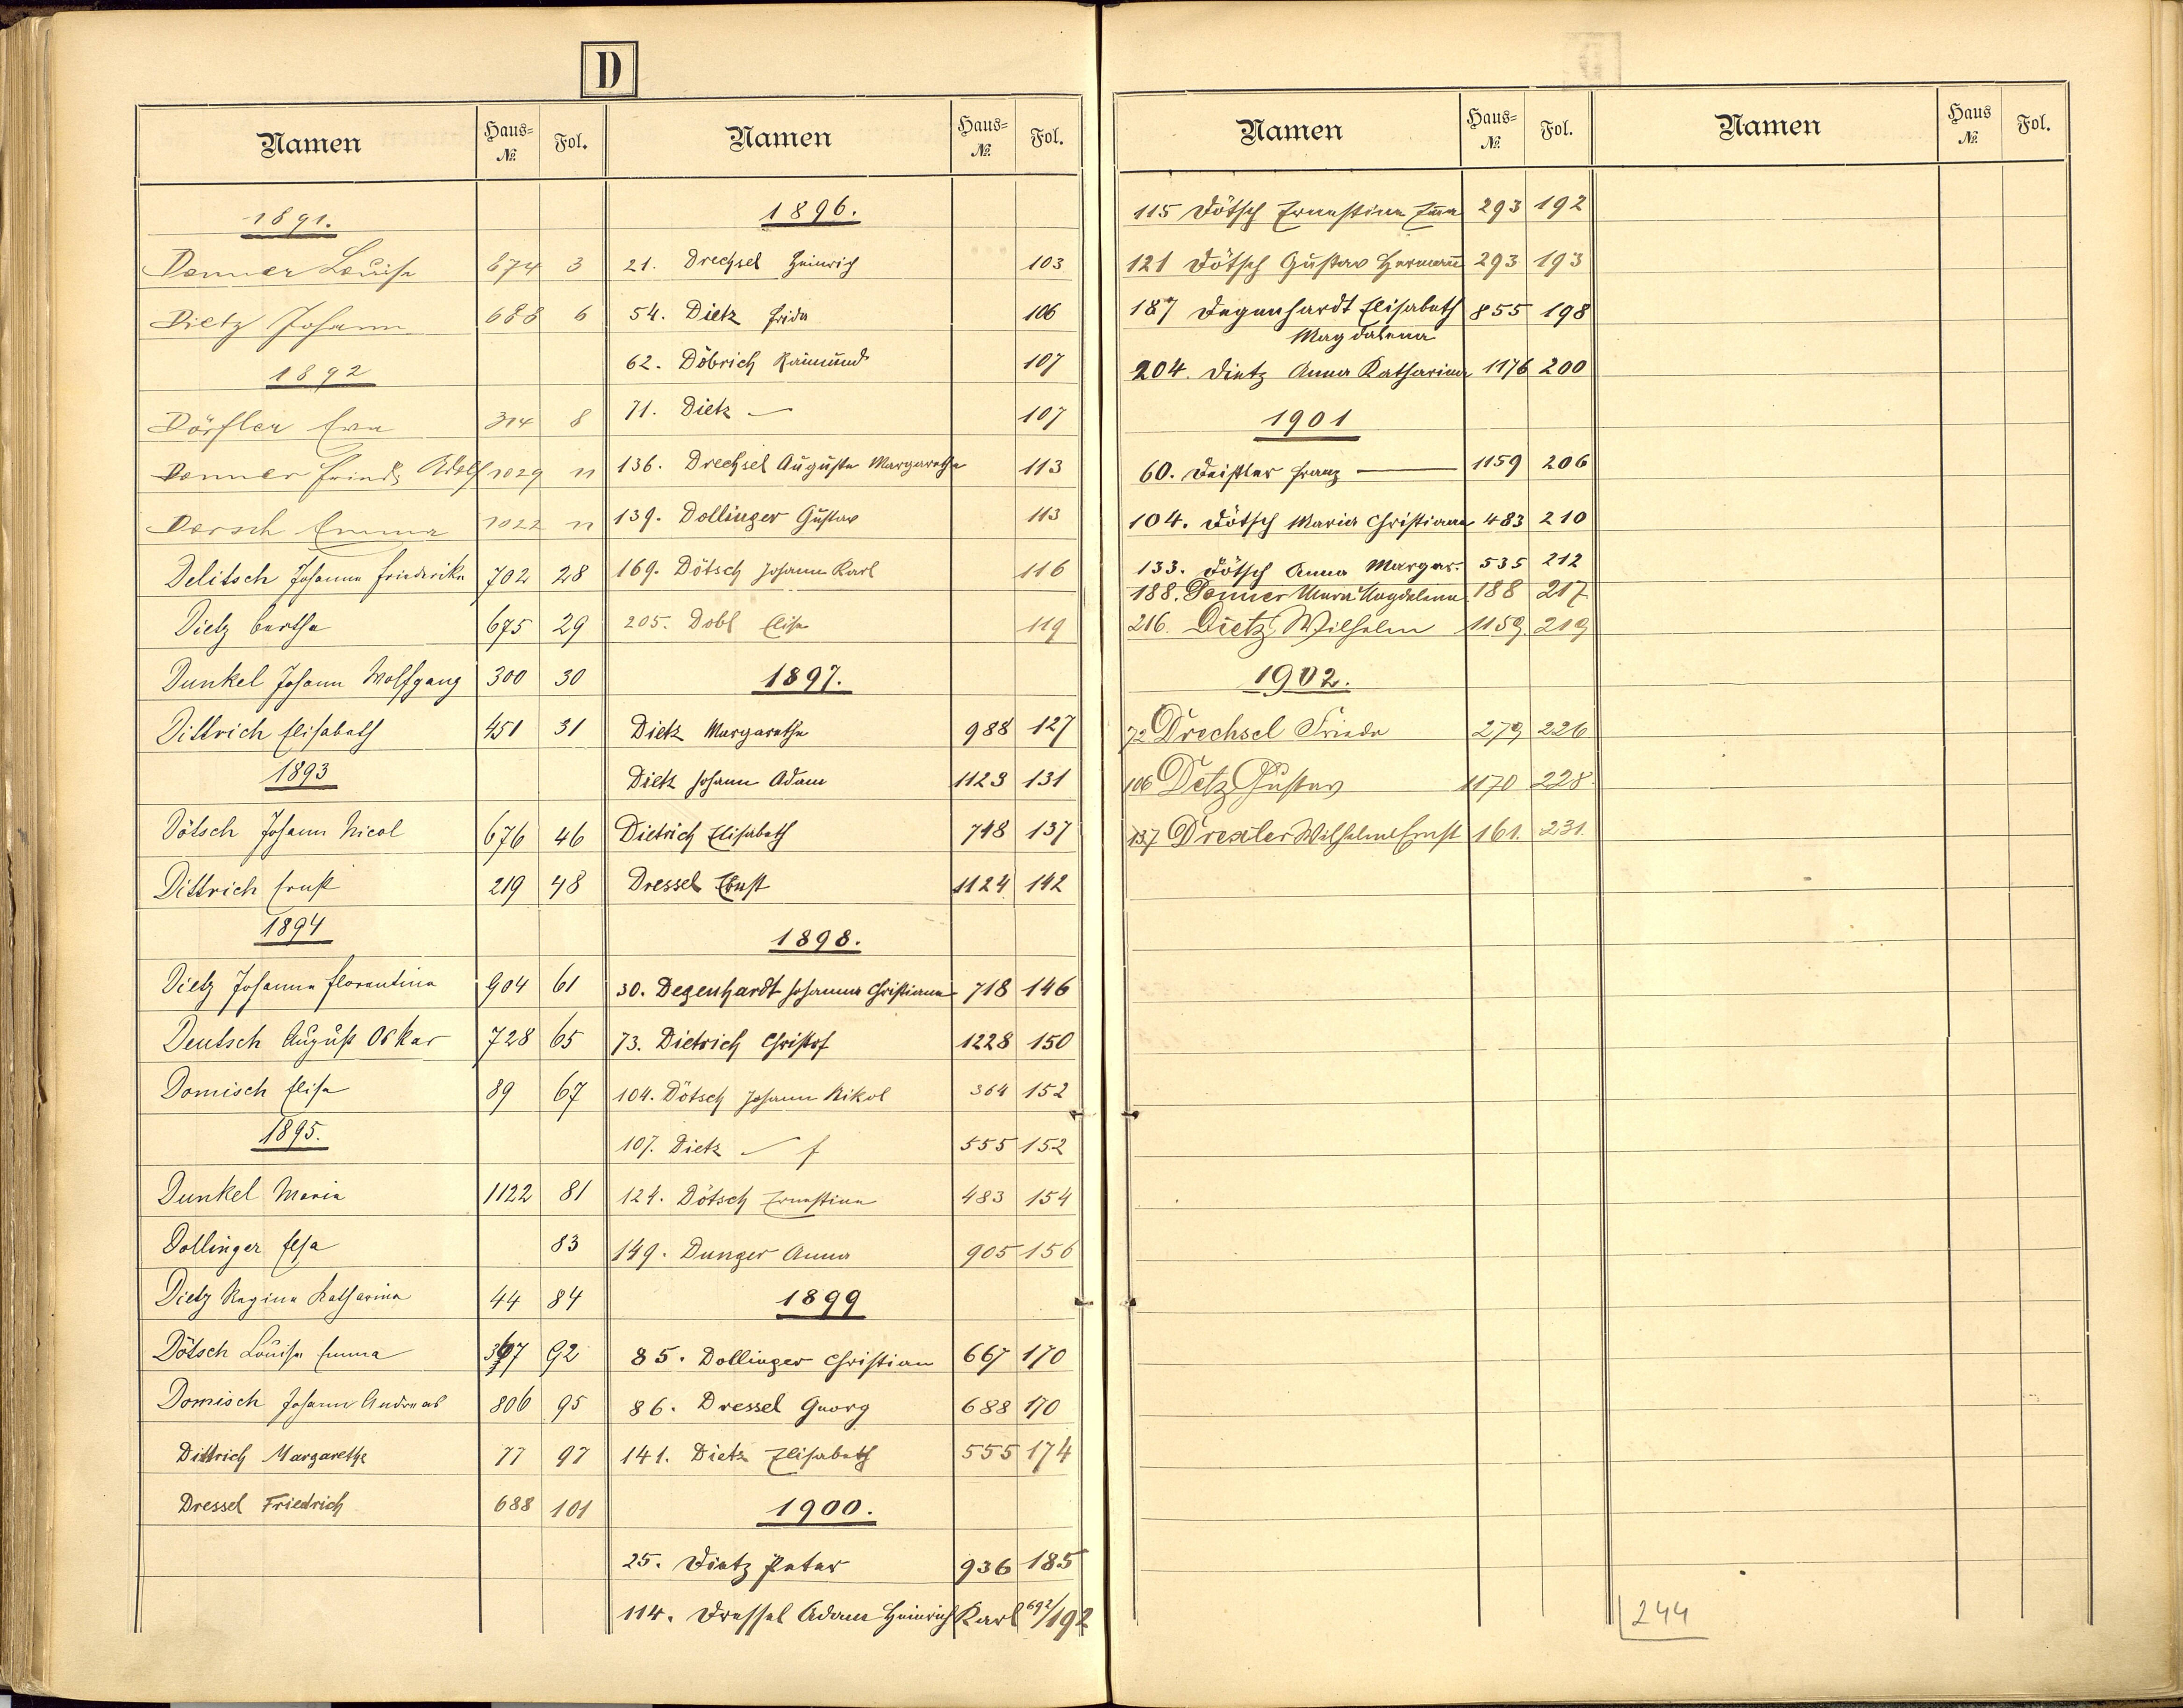 D
Namen Haus= №. Fol.
1891.
Donner Louise 674 3
Dietz Johann 688 6
1892
Dörfler Eva 314 8
Donner Friedr Adolf 1029 11
Dorsch Emma 1022 11
Delitsch Johanna Friederika 702 28
Dietz Bertha 675 29
Dunkel Johann Wolfgang 300 30
Dittrich Elisabeth 451 31
1893
Dötsch Johann Nicol 676 46
Dittrich Ernst 219 48
1894
Dietz Johanna Florentina 904 61
Deutsch August Oskar 728 65
Domisch Elisa 89 67
1895.
Dunkel Maria 1122 81
Dollinger Elsa 83
Dietz Regina Katharina 44 84
Dötsch Louisa Emma 367 92
Domisch Johann Andreas 806 95
Dittrich Margarethe 77 97
Dressel Friedrich 688 101
Namen Haus= №. Fol.
1896.
21. Drechsel Heinrich 103
54. Dietz Frida 106
62. Döbrich Raimund 107
71. Dietz — 107
136. Drechsel Auguste Margarethe 113
139. Dollinger Gustav 113
169. Dötsch Johann Karl 116
205. Dobl Elise 119
1897.
Dietz Margarethe 988 127
Dietz Johann Adam 1123 131
Dietrich Elisabeth 748 137
Dressel Ernst 1124 142
1898.
30. Degenhardt Johanna Christiana 718 146
73. Dietrich Christof 1228 150
104. Dötsch Johann Nikol 364 152
107. Dietz — 555 152
124. Dötsch Ernestine 483 154
149. Dunger Anna 905 156
1899
85. Dollinger Christian 667 170
86. Dressel Georg 688 170
141. Dietz Elisabeth 555 174
1900.
25. Dietz Peter 936 185
114. Dressel Adam Heinrich Karl 692/192
Namen Haus= №. Fol.
115 Dötsch Ernestine Emma 293 192
121 Dötsch Gustav Hermann 293 193
187 Degenhardt Elisabeth 855 198
Magdalena
204. Dietz Anna Katharina 1176 200
1901
60. Deistler Franz — 1159 206
104. Dötsch Maria Christiana 483 210
133. Dötsch Anna Margar. 535 212
188. Donner Maria Magdalena 188 217
216. Dietz Wilhelm 1159 219
1902.
72 Drechsel Frieda 279 226
106 Detz Gustav 1170 228
137 Drexler Wilhelm Ernst 161. 231.
Namen Haus №. Fol.
244